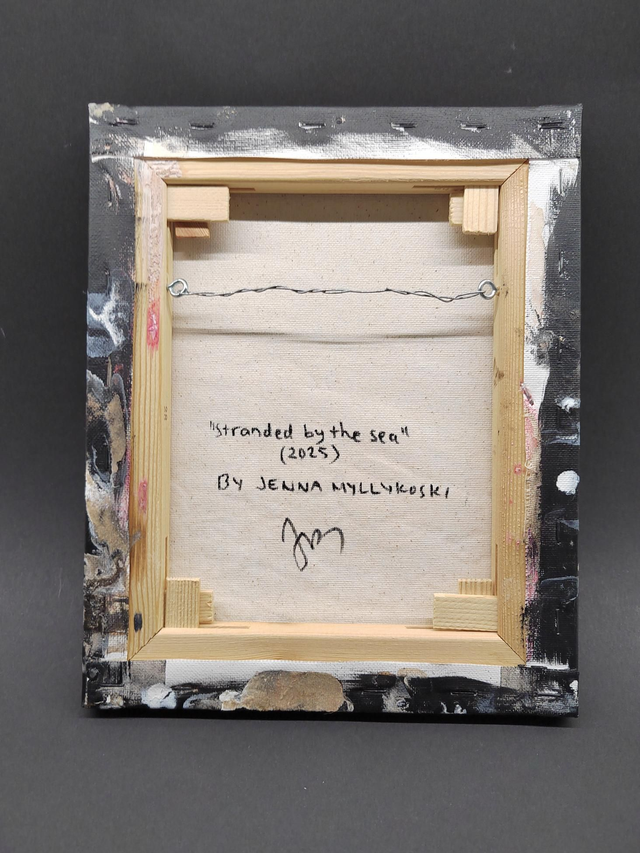 "Stranded by the sea"
(2025)
BY JENNA MYLLYKOSKI